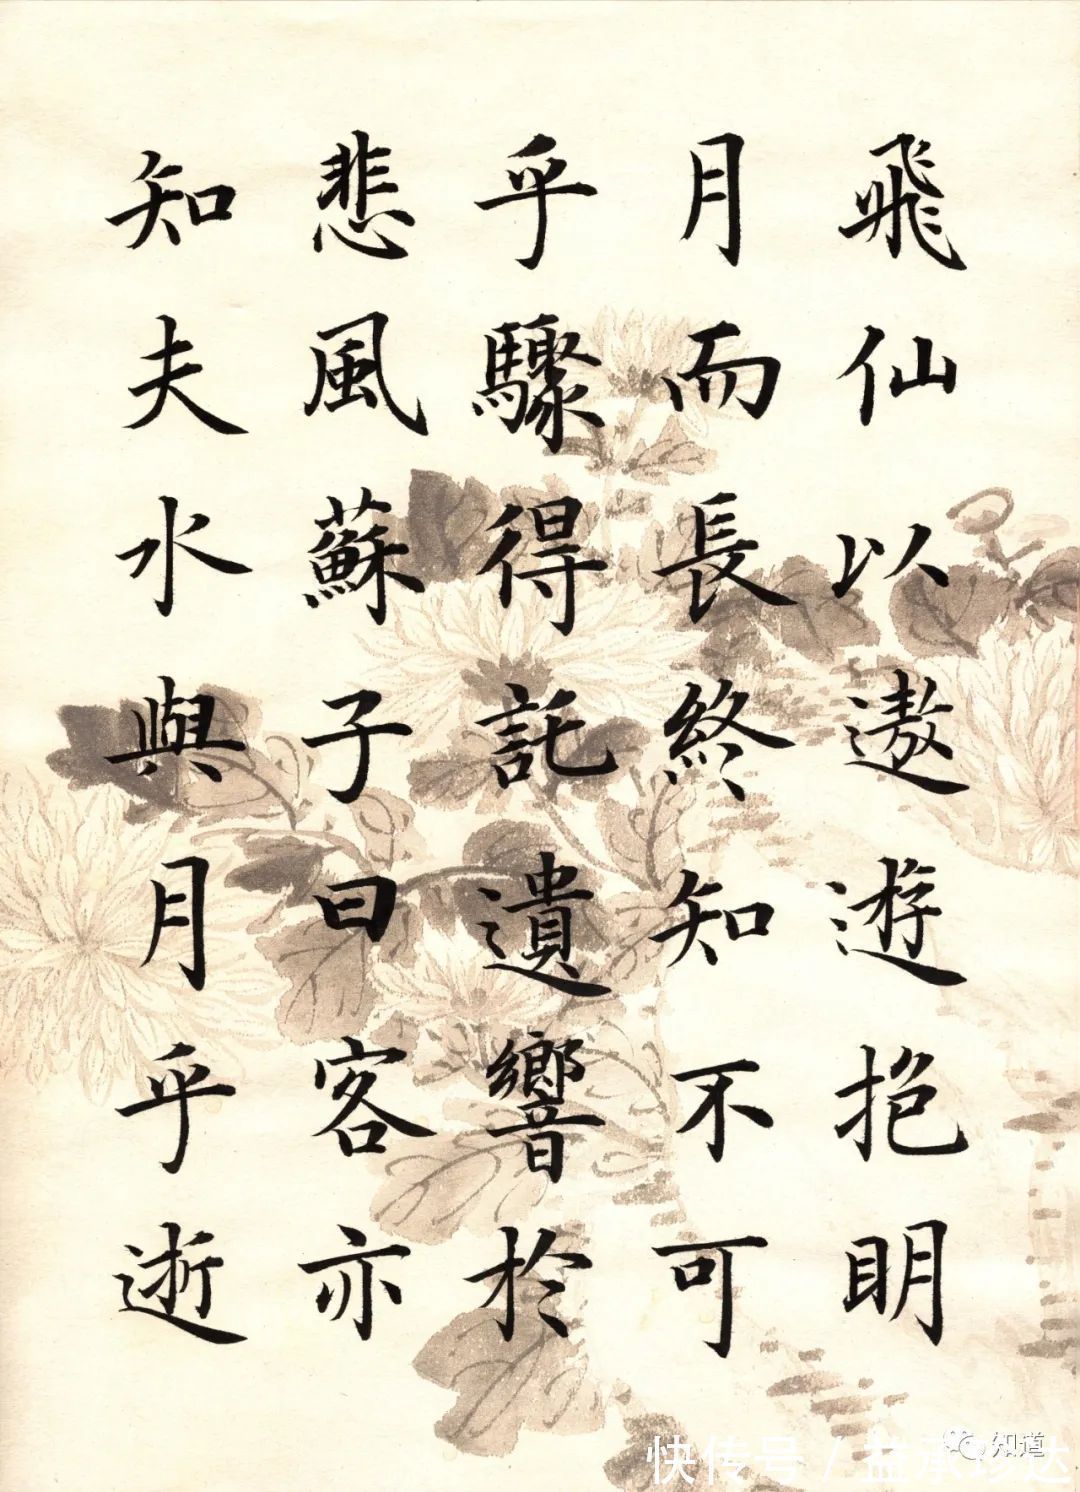 飛仙以遨遊抱明
月而長終知不可
乎驟得託遺響於
悲風蘇子曰客亦
知夫水與月乎逝
知道
快传号 / 益承珍达